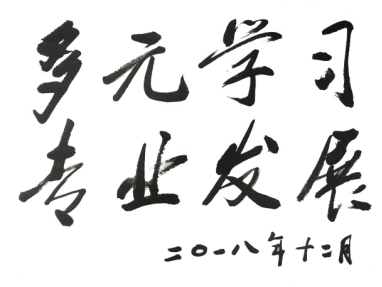 多元学习
专业发展
二〇一八年十二月